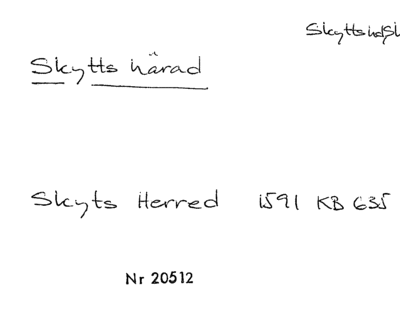 Skytts hd Sk
Skytts härad
Skyts Herred 1591 KB 635
Nr 20512